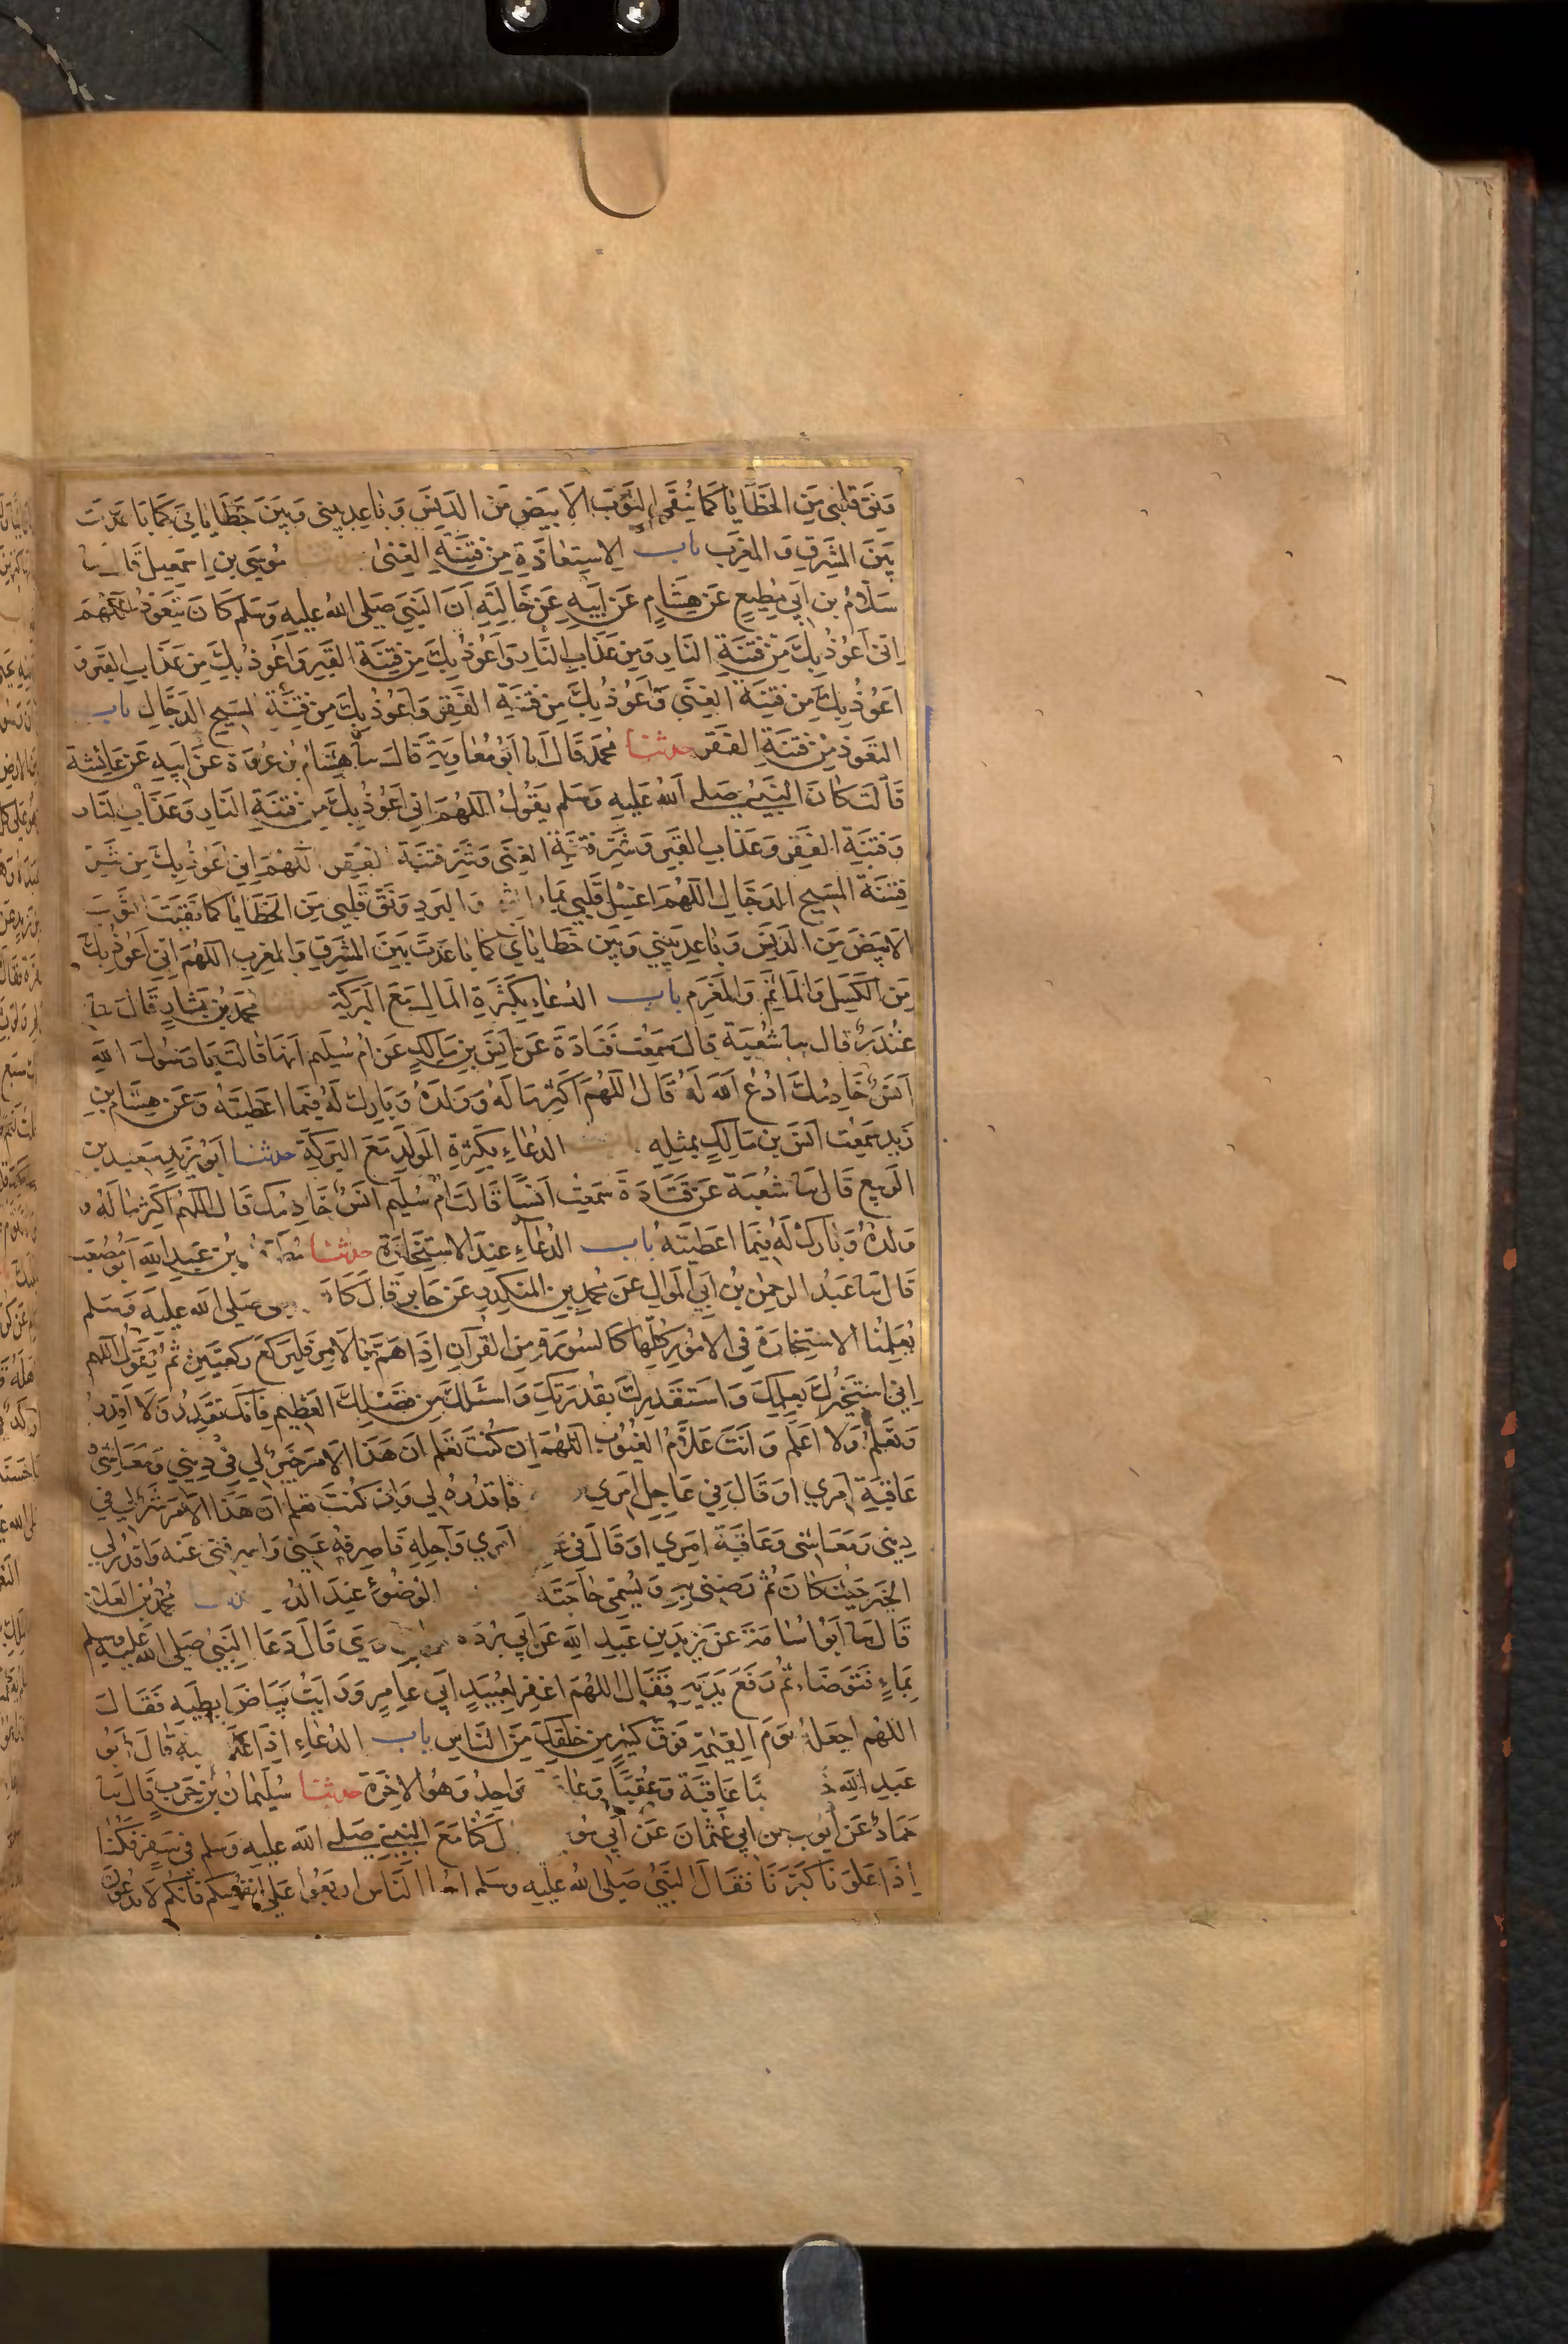 وَنَقِّ قَلْبِي مِنَ الخَطَايَا كَمَا يُنَقَّى الثَّوْبُ الأَبْيَضُ مِنَ الدَّنَسِ وَبَاعِدْ بيني وَبَيْنَ خَطَايَايَ كَمَا بَاعَدْتَ
بَيْنَ المَشْرِقِ وَالمَغْرِبِ باب الاِسْتِعَاذَةِ مِنْ فِتْنَةِ الغِنَى حدثنا مُوسَى بن اِسْمَعِيلَ قَالَ ثنا
سَلاَّمُ بن اَبِي مُطِيعٍ عَنْ هِشَامٍ عَنْ اَبِيهِ عَنْ خَالَتِهِ اَنَّ النَّبِيَّ صَلى اللهُ عليه وَسَلم كَانَ يَتَعَوَّذُ اللَّهُمَّ
اِنِّي اَعُوذُ بِكَ مِنْ فِتْنَةِ النَّارِ وَمِنْ عَذَابِ النَّارِ وَاَعُوذُ بِكَ مِنْ فِتْنَةِ القَبْرِ وَاَعُوذُ بِكَ مِنْ عَذَابِ القَبْرِ وَ
اَعُوذُ بِكَ مِنْ فِتْنَةِ الغِنَى وَاَعُوذُ بِكَ مِنْ فِتْنَةِ الفَقْرِ وَاَعُوذُ بِكَ مِنْ فِتْنَةِ المَسِيحِ الدَّجَّالِ باب
التَّعَوُّذِ مِنْ فِتْنَةِ الفَقْرِ حدثنا مُحَمَّد قَالَ انا اَبُو مُعَاوِيَةَ قَالَ ثنا هِشَامُ بْنُ عُرْوَةَ عَنْ اَبِيهِ عَنْ عَائِشَةَ
قَالَتْ كَانَ النَّبِيُّ صَلى اللهُ عَلَيه وَسَلم يَقُولُ اللَّهُمَّ اِنِّي اَعُوذُ بِكَ مِنْ فِتْنَةِ النَّارِ وَعَذَابِ النَّارِ
وَفِتْنَةِ الفَقْرِ وَعَذَابِ القَبْرِ وَشَرِّ فِتْنَةِ الغِنَى وَشَرِّ فِتْنَةِ الفَقْرِ اللَّهُمَّ اِنِّي اَعُوذُ بِكَ مِنْ شَرِّ
فِتْنَةِ المَسِيحِ الدَّجَّالِ اللَّهُمَّ اغْسِلْ قَلْبِي بِمَاءِ الثلج وَالبَرَدِ وَنَقِّ قَلْبِي مِنَ الخَطَايَا كَمَا نَقَّيْتَ الثَّوْبَ
الاَبْيَضَ مِنَ الدَّنَسِ وَبَاعِدْ بَيْنِي وَبَيْنَ خَطَايَايَ كَمَا بَاعَدْتَ بَيْنَ المَشْرِقِ وَالمَغْرِبِ اللَّهُمَّ اِنِّي اَعُوذُ بِكَ
مِنَ الكَسَلِ وَالمَاثَمِ وَالمَغْرَمِ باب الدُّعَاءِ بِكَثْرَةِ المَالِ مَعَ البَرَكَةِ محَمَّدُ بْنُ بَشَّارٍ قَالَ ثنا
غُنْدَرٌ قال ثنا شُعْبَةُ قالَ سَمِعْتُ قَتَادَةَ عَنْ اَنَسِ بْنِ مَالِكٍ عَنْ اُمِّ سُلَيْمٍ اَنَّهَا قَالَتْ يَا رَسُولَ اللهِ
اَنَسٌ خَادِمُكَ ادْعُ اللهَ لَهُ قَالَ اللَّهُمَّ اَكْثِرْ مَالَهُ وَوَلَدَهُ وَبَارِكْ لَهُ فِيمَا اَعْطَيْتَهُ وَعَنْ هِشَامِ بْنِ
زَيْدٍ سَمِعْتُ اَنَسَ بن مَالِكٍ بِمِثْلِهِ الدُّعَاءِ بِكَثْرَةِ الوَلَدِ مَعَ البَرَكَةِ حدثنا اَبُو زَيْدٍ سَعِيدُ بن
الرَّبِيعِ قَالَ ثنا شُعْبَةُ عَنْ قَتَادَةَ سَمِعْتُ اَنَسًا قَالَتْ اُمُّ سُلَيْمٍ اَنَسٌ خَادِمُكَ قَالَ اللَّهُمَّ اَكْثِرْ مَالَهُ وَ
وَلَدَهُ وَبَارِكْ لَهُ فِيمَا اَعْطَيْتَهُ باب الدُّعَاءِ عِنْدَ الاِسْتِخَارَةِ حدثنا مُطَرِّفُ بْنُ عَبْدِ اللهِ اَبُو مُصْعَبٍ
قَالَ ثنا عَبْدُ الرحمنِ بْنُ اَبِي المَوَالِ عَنْ مُحَمَّدِ بْنِ المُنْكَدِرِ عَنْ جَابِرٍ قَالَ كَانَ صَلى الله عليه وَسَلم
يُعَلِّمُنَا الاِسْتِخَارَةَ فِي الاُمُورِ كُلِّهَا كَالسُّورَةِ مِنَ القُرْآنِ اِذَا هَمَّ بِالاَمْرِ فَلْيَرْكَعْ رَكْعَتَيْنِ ثُمَّ يَقُولُ اللهم
اِنِّي اَسْتَخِيرُكَ بِعِلْمِكَ وَاَسْتَقْدِرُكَ بِقُدْرَتِكَ وَاَسْئَلُكَ مِنْ فَضْلِكَ العَظِيمِ فَاِنَّكَ تَقْدِرُ وَلاَ اَقْدِرُ
وَتَعْلَمُ وَلاَ اَعْلَمُ وَاَنْتَ عَلاَّمُ الغُيُوبِ اللَّهُمَّ اِن كُنْتَ تَعْلَمُ اَنَّ هَذَا الاَمْرَ خَيْرٌ لِي فِي دِينِي وَمَعَاشِي وَ
عَاقِبَةِ اَمْرِي اَوْ قَالَ فِي عَاجِلِ اَمْرِي فَاقْدُرْهُ لِي وَاِنْ كُنْتَ تَعْلَمُ اَنَّ هَذَا الاَمْرَ شَرٌّ لِي فِي
دِينِي وَمَعَاشِي وَعَاقِبَةِ اَمْرِي اَوْ قَالَ فِي اَمْرِي وَآجِلِهِ فَاصْرِفْهُ عَنِّي وَاصْرِفْنِي عَنْهُ وَاقْدُرْ لِي
الخَيْرَ حَيْثُ كَانَ ثُمَّ رَضِّنِي بِهِ وَيُسَمِّي حَاجَتَهُ الوُضُوءِ عِنْدَ مُحَمَّدُ بْنُ العَلاَءِ
قَالَ ثنا اَبُو اُسَامَةَ عَنْ بُرَيْدِ بْنِ عَبْدِ اللهِ عَنْ اَبِي بُرْدَةَ قَالَ دَعَا النَّبِيُّ صَلى الله عليه وسلم
بِمَاءٍ فَتَوَضَّاءَ ثُمَّ رَفَعَ يَدَيْهِ فَقَالَ اللهُمَّ اغْفِرْ لِعُبَيْدٍ اَبِي عَامِرٍ وَرَاَيْتُ بَيَاضَ اِبْطَيْهِ فَقَالَ
اللهُمَّ اجْعَلْهُ يَوْمَ القِيمَةِ فَوْقَ كَثِيرٍ مِنْ خَلْقِكَ مِنَ النَّاسِ باب الدُّعَاءِ اِذَا عَلاَ قَالَ اَبُو
عَبْدِ اللهِ عَاقِبَةً وَعُقْبًا وَعَا وَاحِدٌ وَهُوَ الاخِرَةُ حدثنا سُلَيْمَانُ بْنُ حَرْبٍ قَالَ ثنا
حَمَّادٌ عَنْ اَيُّوبَ عن اَبِي عُثْمَانَ عَنْ اَبِي كُنَّا مَعَ النَّبِيِّ صَلى الله عليه وسلم فِي سَفَرٍ فَكُنَّا
اِذَا عَلَوْنَا كَبَّرْنَا فَقَالَ النَّبِيُّ صَلى اللهُ عليه وسلم النَّاسُ ارْبَعُوا عَلَى اَنْفُسِكُمْ فَاِنَّكُمْ لاَ تَدْعُونَ